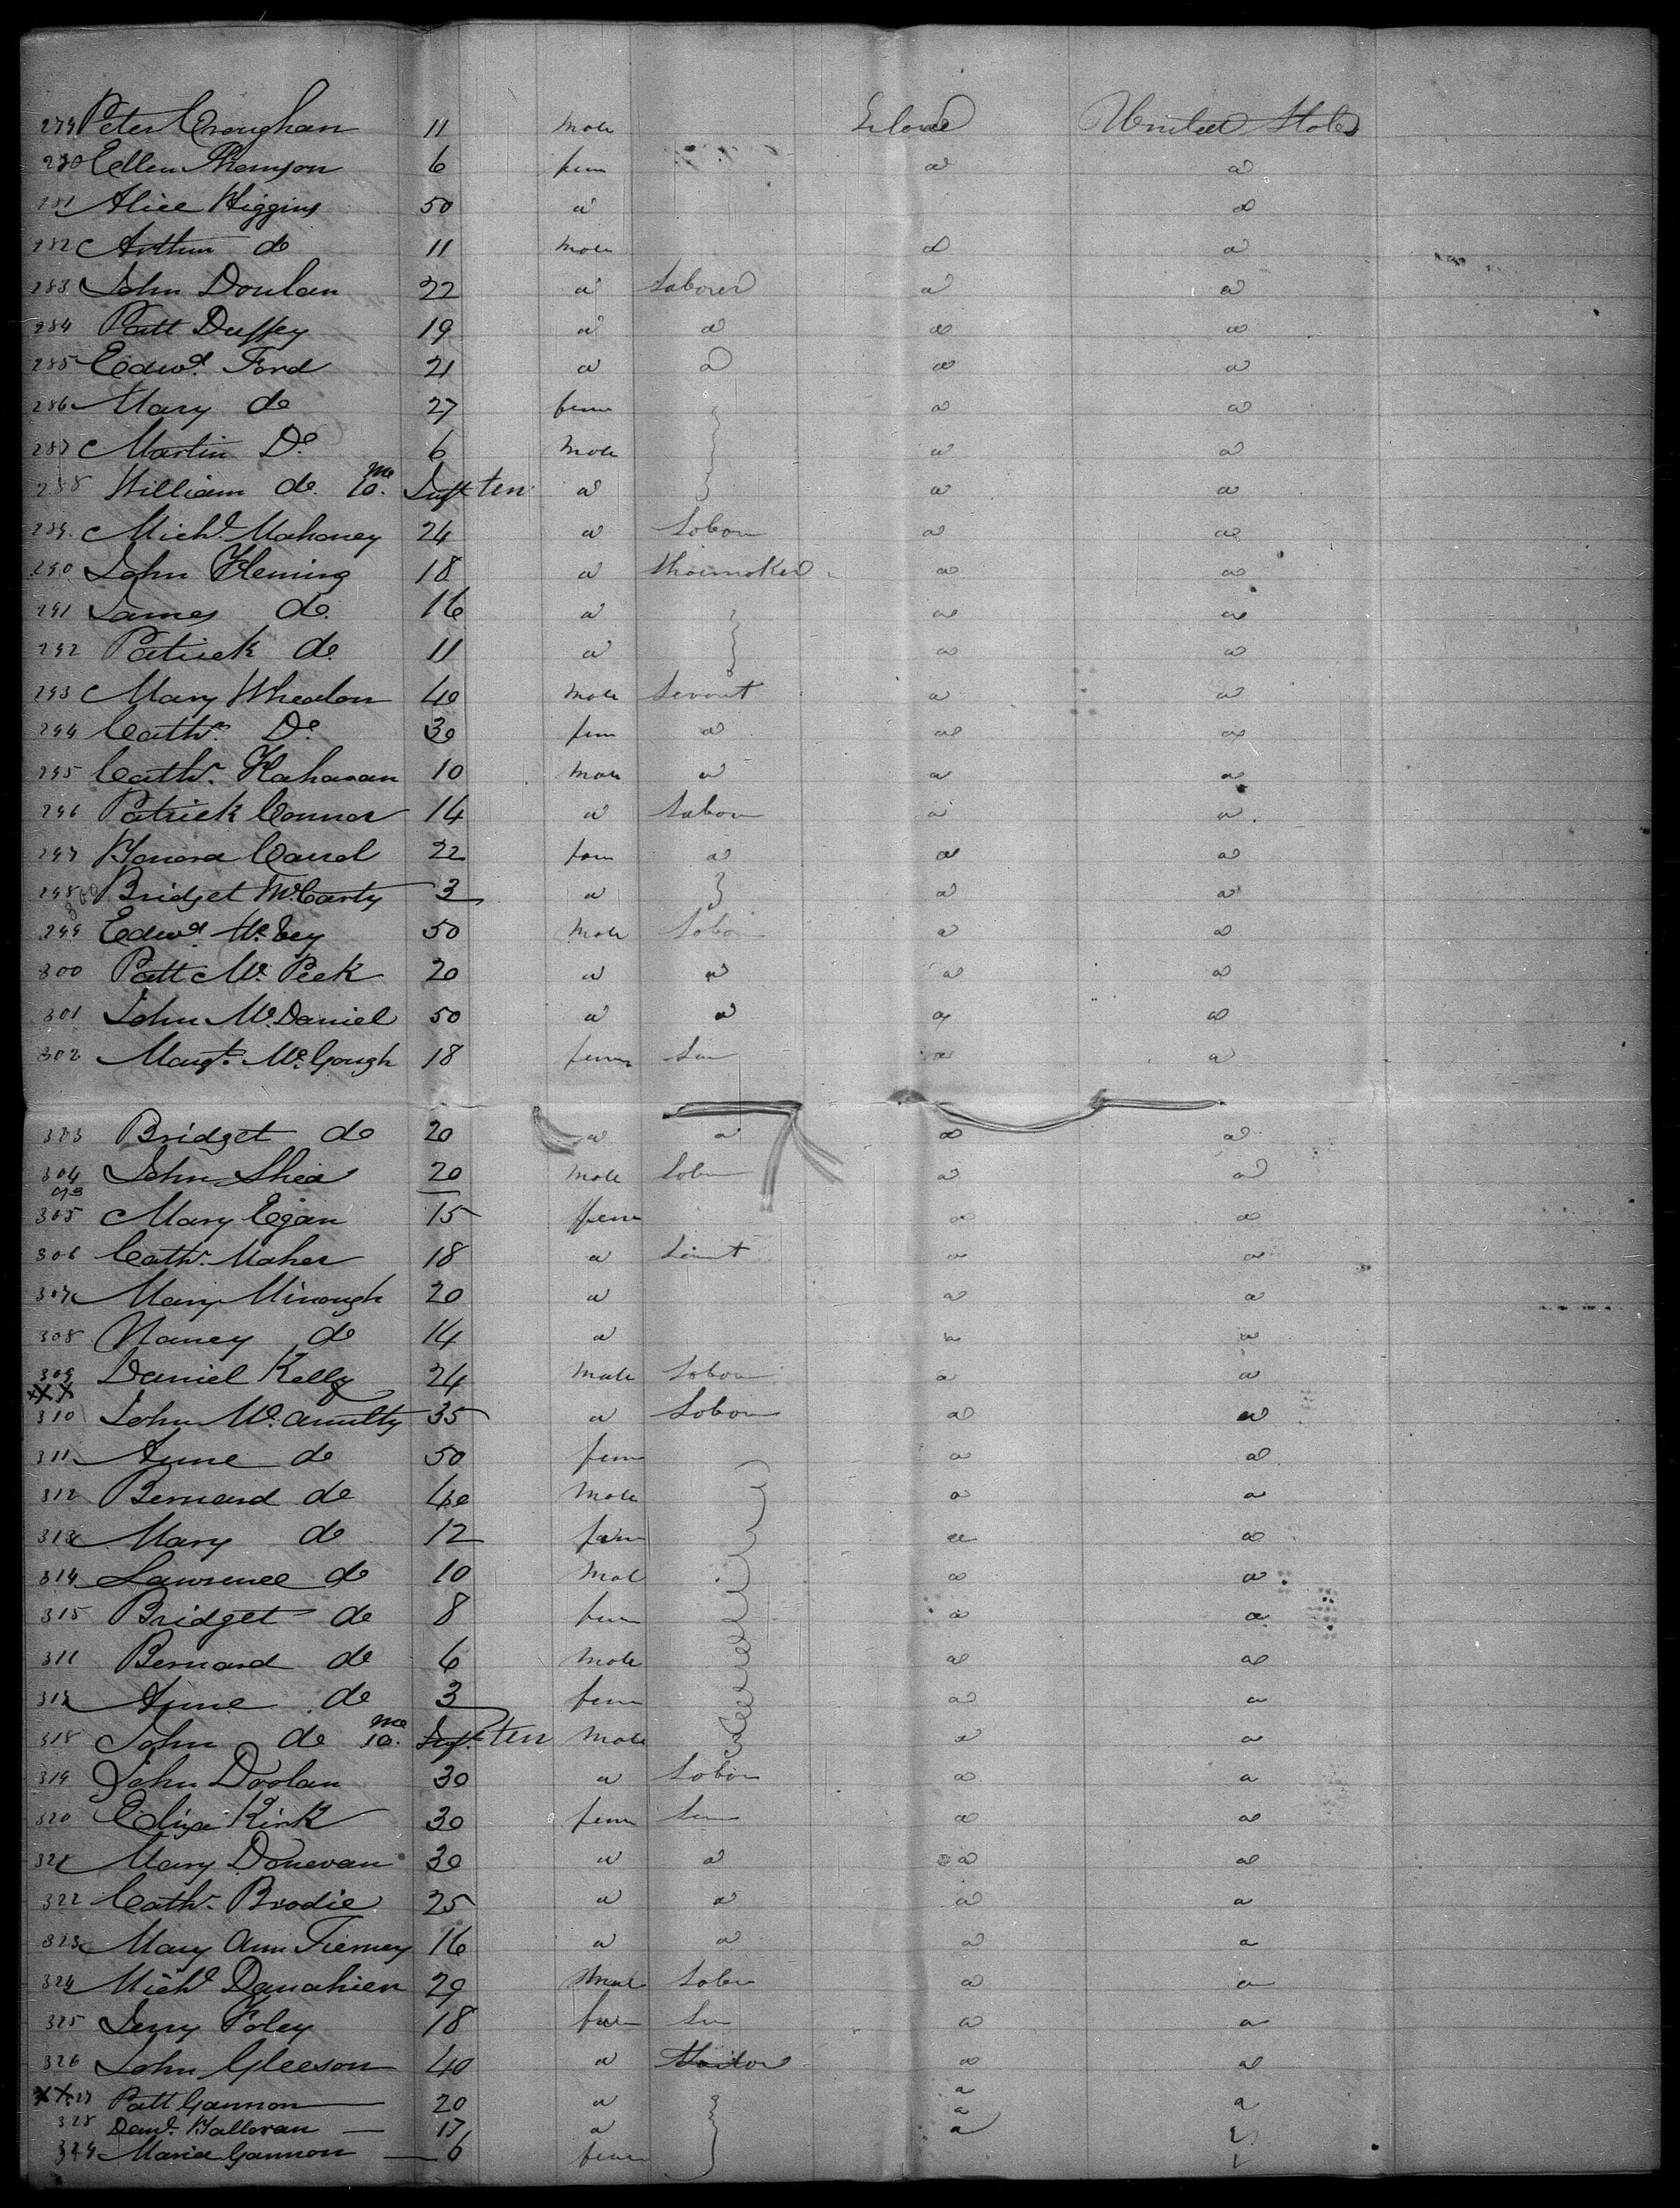 279 Peter Croughan 11 male Irland United States
280 Ellen Thomson 6 fem do do
281 Alice Higgins 50 do do
282 Arthur do 11 male do do
283 John Doulan 22 do Laborer do do
284 Patt Duffey 19 do do do do
285 Edwd. Ford 21 do do do do
286 Mary do 27 fem do do
287 Martin Do. 6 male do do
288 William do. 10. mo Inft ten do do do
289. Michl. Mahoney 24 do Labour do do
290 John Fleming 18 do Shoemaker do do
291 James do. 16 do do do
292 Patrick do. 11 do do do
293 Mary Whealon 40 male Servant do do
294 Cathe. Do. 30 fem do do do
295 Cathr. Hahasan 10 male do do do
296 Patrick Connor 14 do Labour do do
297 Honora Carrol 22 fem do do do
298 Bridget McCarty 3 do do do
299 Edwd. McEey 50 male Labour do do
300 Patt Mc. Peek 20 do do do do
301 John Mc. Daniel 50 do do do do
302 Margt. Mc. Gough 18 fem Ser do do
303 Bridget do 20 do do do do
304 John Shea 20 male Labour do do
305 Mary Egan 15 fem do do
306 Cathr. Maher 18 do Servt do do
307 Mary Minough 20 do do do
308 Nancy do 14 do do do
309 Daniel Kelly 24 male Labour do do
XX X
310 John Mc. Anulty 35 do Labour do do
311 Anne do 50 fem do do
312 Bernard do 40 male do do
313 Mary do 12 fem do do
314 Lawrence do 10 male do do
315 Bridget do 8 fem do do
311 Bernard do 6 male do do
317 Anne do 3 fem do do
318 John do 10. mo Inft. ten male do do
319 John Doolan 30 do Labour do do
320 Eliza Kirk 30 fem Ser do do
321 Mary Donevan 30 do do do do
322 Cathr. Brodie 25 do do do do
323 Mary Ann Tierney 16 do do do do
324 Michl Danahier 29 male Labour do do
325 Jerry Foley 18 fem Ser do do
326 John Gleeson 40 do do do
XX 327 Patt Gannon 20 do do do
328 Danl. Halloran 17 do do
329 Maria Gannon 6 fem